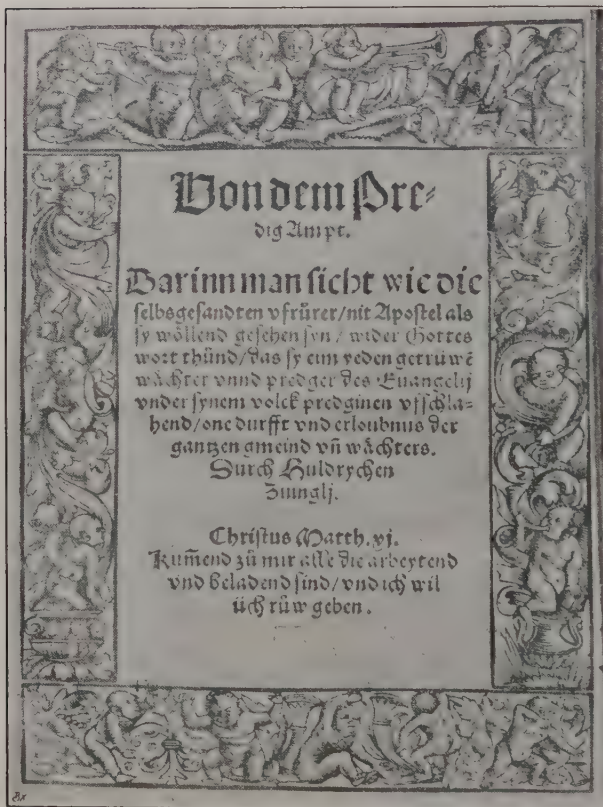 Von dem Pre⸗
dig Ampt.
Darinn man sicht wie die
selbsgesandten vfrürer/nit Apostel als
sy wöllend gesehen syn/ wider Gottes
wort thůnd/das sy eim yeden getrüwē
wächter vnnd predger des Euangelij
vnder synem volck predginen vfschla⸗
hend/one durfft vnd erloubnus der
gantzen gmeind vñ wächters.
Durch Huldrychen
Zuinglj.
Christus Matth. xj.
Kum̃end zů mir alle die arbeytend
vnd beladend sind/ vnd ich wil
üch růw geben.